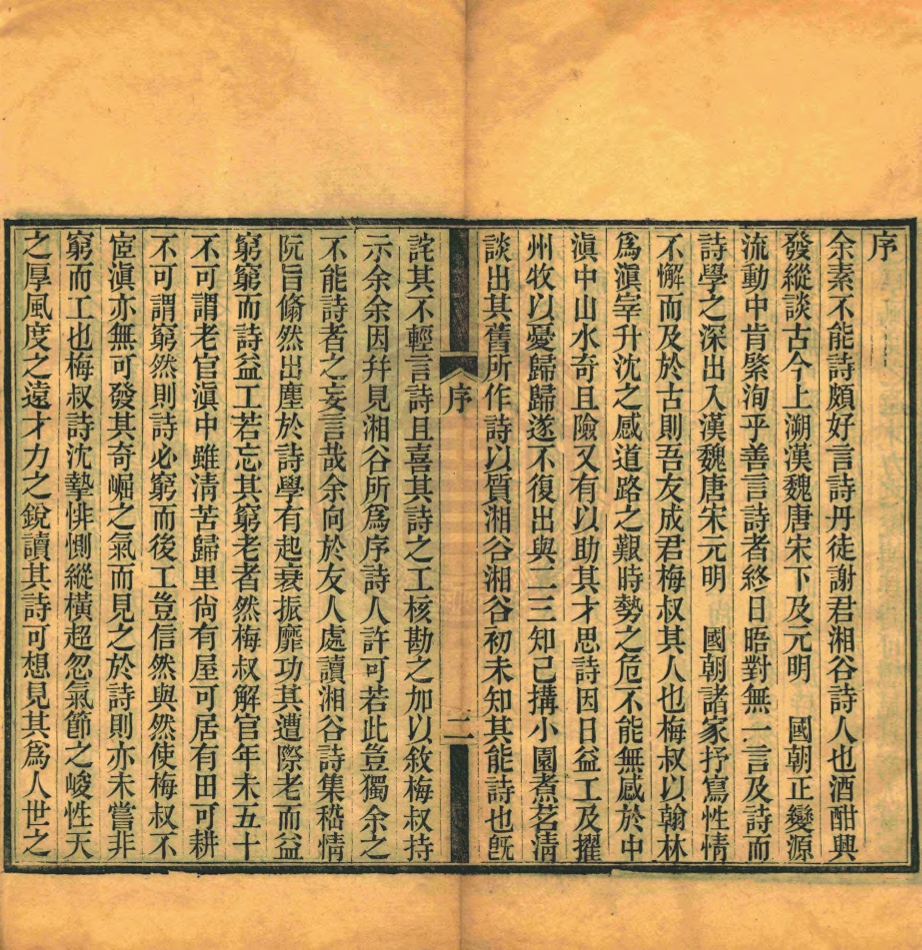 序
余素不能詩頗好言詩丹徒謝君湘谷詩人也酒酣興
發縱談古今上溯漢魏唐宋下及元明　國朝正變源
流動中肯綮洵乎善言詩者終日晤對無一言及詩而
詩學之深出入漢魏唐宋元明　國朝諸家抒寫性情
不懈而及於古則吾友成君梅叔其人也梅叔以翰林
爲滇宰升沈之感道路之艱時勢之危不能無感於中
滇中山水奇且險又有以助其才思詩因日益工及擢
州牧以憂歸歸遂不復出與二三知己搆小園煮茗淸
談出其舊所作詩以質湘谷湘谷初未知其能詩也旣
序
二
詫其不輕言詩且喜其詩之工核勘之加以敘梅叔持
示余余因幷見湘谷所爲序詩人許可若此豈獨余之
不能詩者之妄言哉余向於友人處讀湘谷詩集嵇情
阮旨翛然出塵於詩學有起衰振靡功其遭際老而益
窮窮而詩益工若忘其窮老者然梅叔解官年未五十
不可謂老官滇中雖淸苦歸里尙有屋可居有田可耕
不可謂窮然則詩必窮而後工豈信然與然使梅叔不
宦滇亦無可發其奇崛之氣而見之於詩則亦未嘗非
窮而工也梅叔詩沈摯悱惻縱橫超忽氣節之峻性天
之厚風度之遠才力之銳讀其詩可想見其爲人世之